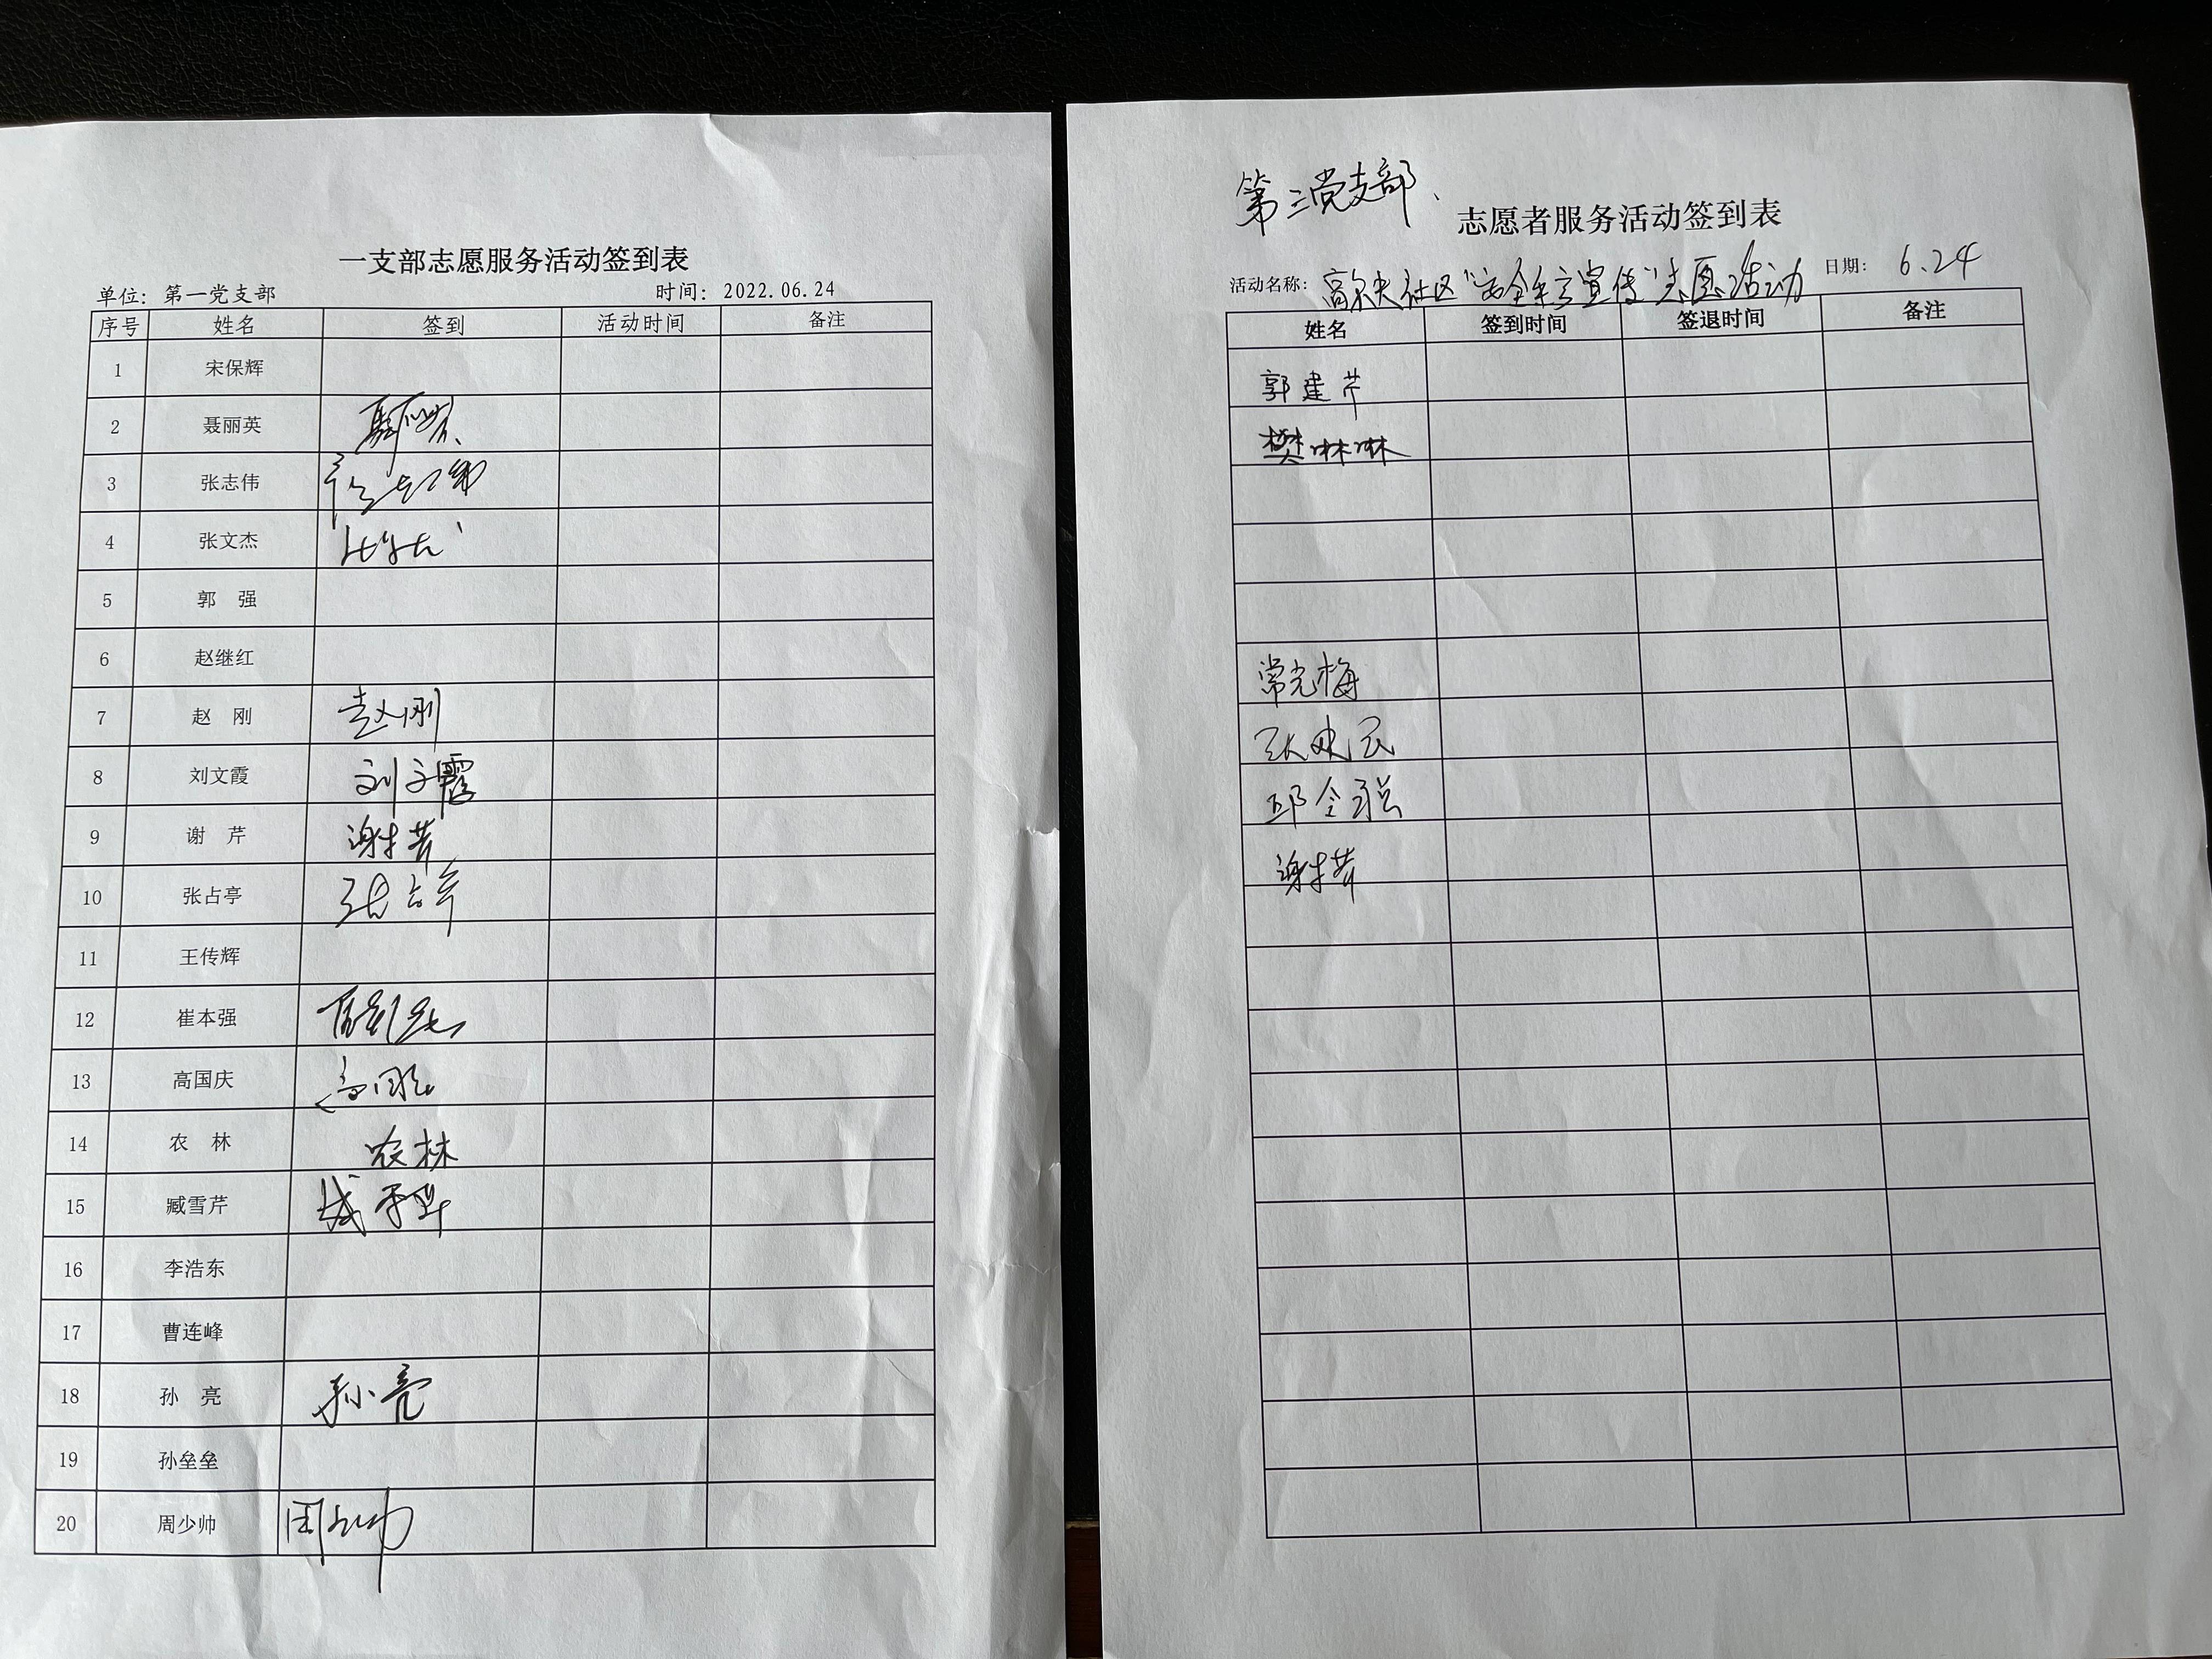 一支部志愿服务活动签到表
单位：第一党支部 时间：2022.06.24
序号 姓名 签到 活动时间 备注
1 宋保辉
2 聂丽英 聂丽英
3 张志伟 张志伟
4 张文杰
5 郭 强
6 赵继红
7 赵 刚 赵刚
8 刘文霞 刘文霞
9 谢 芹 谢芹
10 张占亭 张占亭
11 王传辉
12 崔本强
13 高国庆 高国庆
14 农 林 农林
15 臧雪芹 臧雪芹
16 李浩东
17 曹连峰
18 孙 亮 孙亮
19 孙垒垒
20 周少帅 周少帅
第三党支部、
志愿者服务活动签到表
活动名称：高尔夫社区“安全生产宣传”志愿活动 日期：6.24
姓名 签到时间 签退时间 备注
郭建芹
樊琳琳
常光梅
张建民
邱全
谢芹